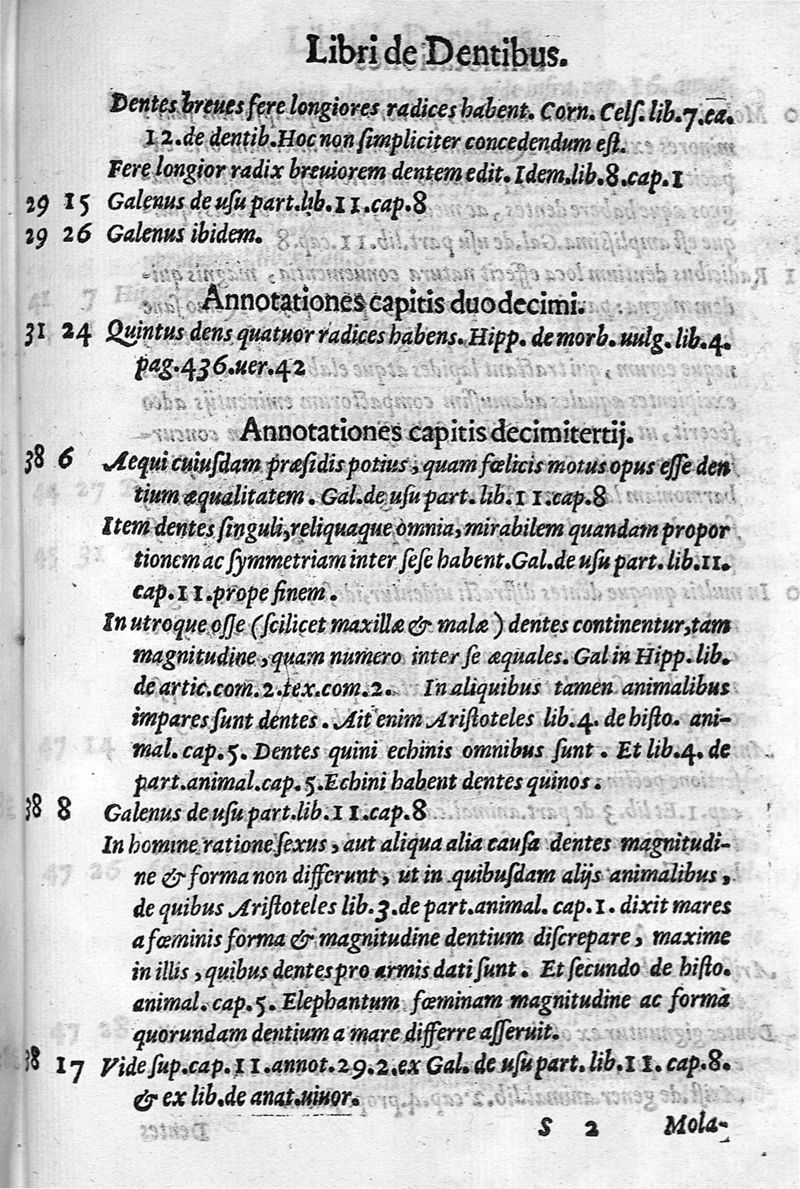 Libri de Dentibus.
Dentes breues fere longiores radices habent. Corn. Celſ. lib. 7. ca.
12. de dentib. Hoc non ſimpliciter concedendum eſt.
Fere longior radix breuiorem dentem edit. Idem. lib. 8. cap. 1
29 15 Galenus de uſu part. lib. 11. cap. 8
29 26 Galenus ibidem.
Annotationes capitis duodecimi.
31 24 Quintus dens quatuor radices habens. Hipp. de morb. uulg. lib. 4.
pag. 436. uer. 42
Annotationes capitis decimitertij.
38 6 Aequi cuiuſdam præſidis potius, quam fœlicis motus opus eſſe den
tium æqualitatem. Gal. de uſu part. lib. 11. cap. 8
Item dentes ſinguli, reliquaque omnia, mirabilem quandam propor
tionem ac ſymmetriam inter ſeſe habent. Gal. de uſu part. lib. 11.
cap. 11. prope finem.
In utroque oſſe (ſcilicet maxillæ & malæ) dentes continentur, tam
magnitudine, quam numero inter ſe æquales. Gal in Hipp. lib.
de artic. com. 2. tex. com. 2. In aliquibus tamen animalibus
impares ſunt dentes. Ait enim Ariſtoteles lib. 4. de hiſto. ani-
mal. cap. 5. Dentes quini echinis omnibus ſunt. Et lib. 4. de
part. animal. cap. 5. Echini habent dentes quinos.
38 8 Galenus de uſu part. lib. 11. cap. 8
In homine ratione ſexus, aut aliqua alia cauſa dentes magnitudi-
ne & forma non differunt, ut in quibuſdam alijs animalibus,
de quibus Ariſtoteles lib. 3. de part. animal. cap. 1. dixit mares
a fœminis forma & magnitudine dentium diſcrepare, maxime
in illis, quibus dentes pro armis dati ſunt. Et ſecundo de hiſto.
animal. cap. 5. Elephantum fœminam magnitudine ac forma
quorundam dentium a mare differre aſſeruit.
38 17 Vide ſup. cap. 11. annot. 29. 2. ex Gal. de uſu part. lib. 11. cap. 8.
& ex lib. de anat. uiuor.
S 2 Mola-